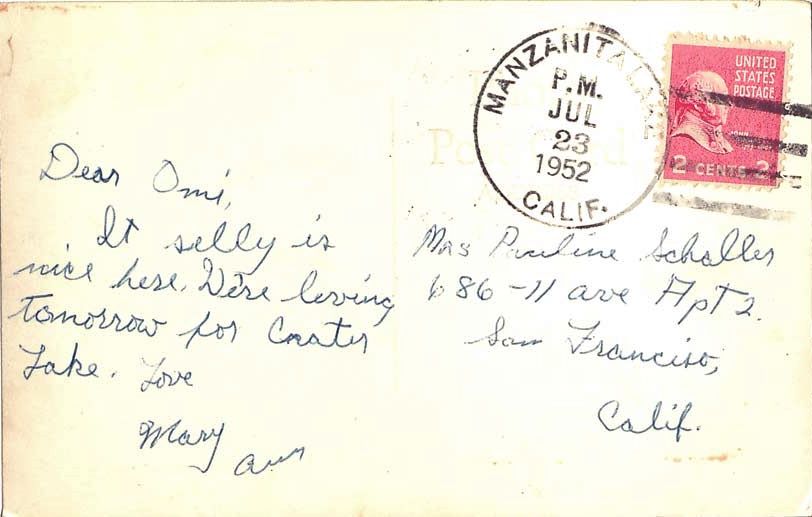 Dear Omi,
It selly is
nice here. We're leving
tomorrow for Crater
Lake. Love
Mary
Ann
MANZANITA LAKE
P.M.
JUL
23
1952
CALIF.
UNITED
STATES
POSTAGE
JOHN
2 CENTS 2
Mrs Pauline Schaller
686-11 ave Apt 2.
San Franciso,
Calif.
Post Card